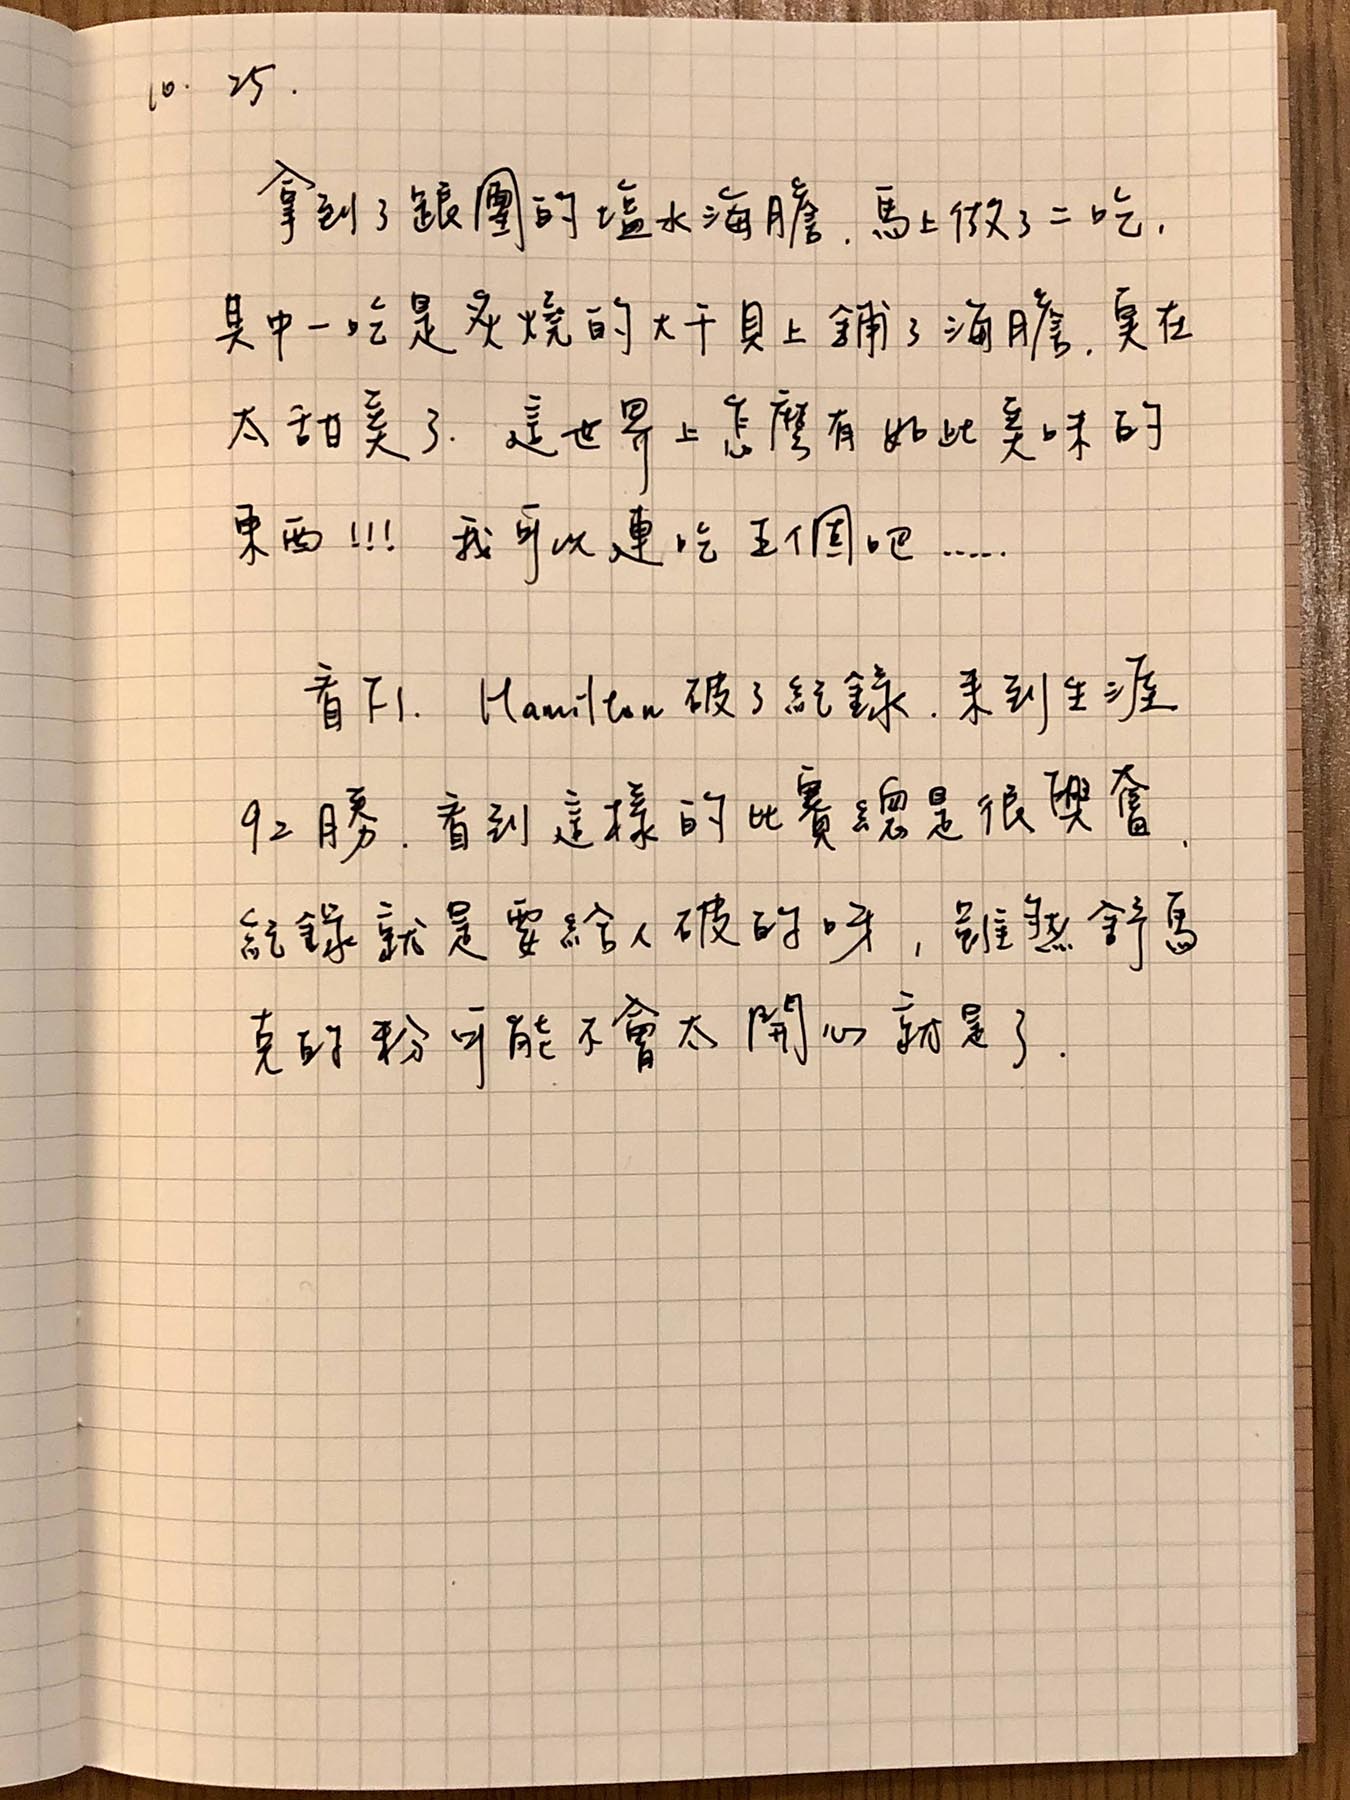 10. 25.
拿到了跟團的塩水海膽，馬上做了二吃，
其中一吃是炙燒的大干貝上鋪了海膽，實在
太甜美了. 這世界上怎麼有如此美味的
東西!!! 我可以連吃五個吧.....
看F1. Hamilton破了紀錄，來到生涯
92勝，看到這樣的比賽總是很興奮，
紀錄就是要給人破的呀，雖然舒馬
克的粉可能不會太開心就是了.